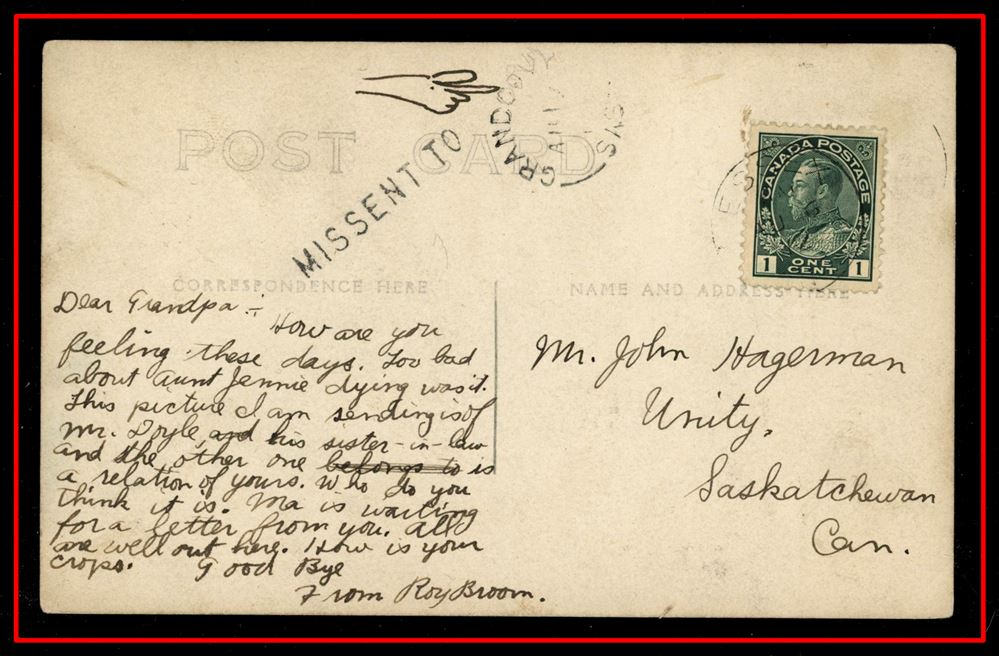 POST CARD
MISSENT TO
GRANDORA
SAS
CANADA POSTAGE
1 ONE CENT 1
CORRESPONDENCE HERE
NAME AND ADDRESS HERE
Dear Grandpa :-
How are you
feeling these days. Too bad
about Aunt Jennie dying was it.
This picture I am sending is of
Mr. Doyle, and his sister-in-law
and the other one belongs to is
a relation of yours. Who do you
think it is. Ma is waiting
for a letter from you. All
are well out here. How is your
crops. Good Bye
From Roy Broom.
Mr. John Hagerman
Unity,
Saskatchewan
Can.